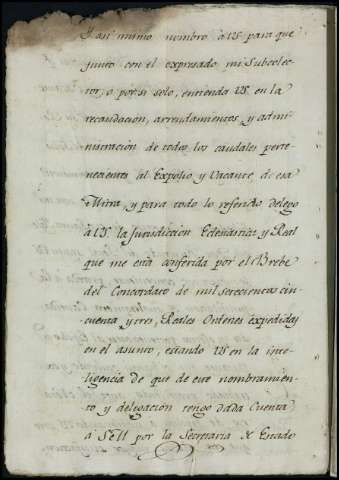 Y asi mismo nombro à VS para que
junto con el expresado mi Subcolec-
tor, o por si solo, entienda VS en la
recaudacion, arrendamientos, y admi-
nistración de todos los caudales perte-
necientes al Expolio y Vacante de esa
Mitra, y para todo lo referido delego
à VS la Jurisdicción Eclesiastica, y Real
que me está conferida por el Brebe
del Concordato de mil setecientos cin-
cuenta y tres, Reales Ordenes expedidas
en el asunto, estando VS en la inte-
ligencia de que de este nombramien-
to y delegacion tengo dada Cuenta
à SM por la Secretaria de Estado